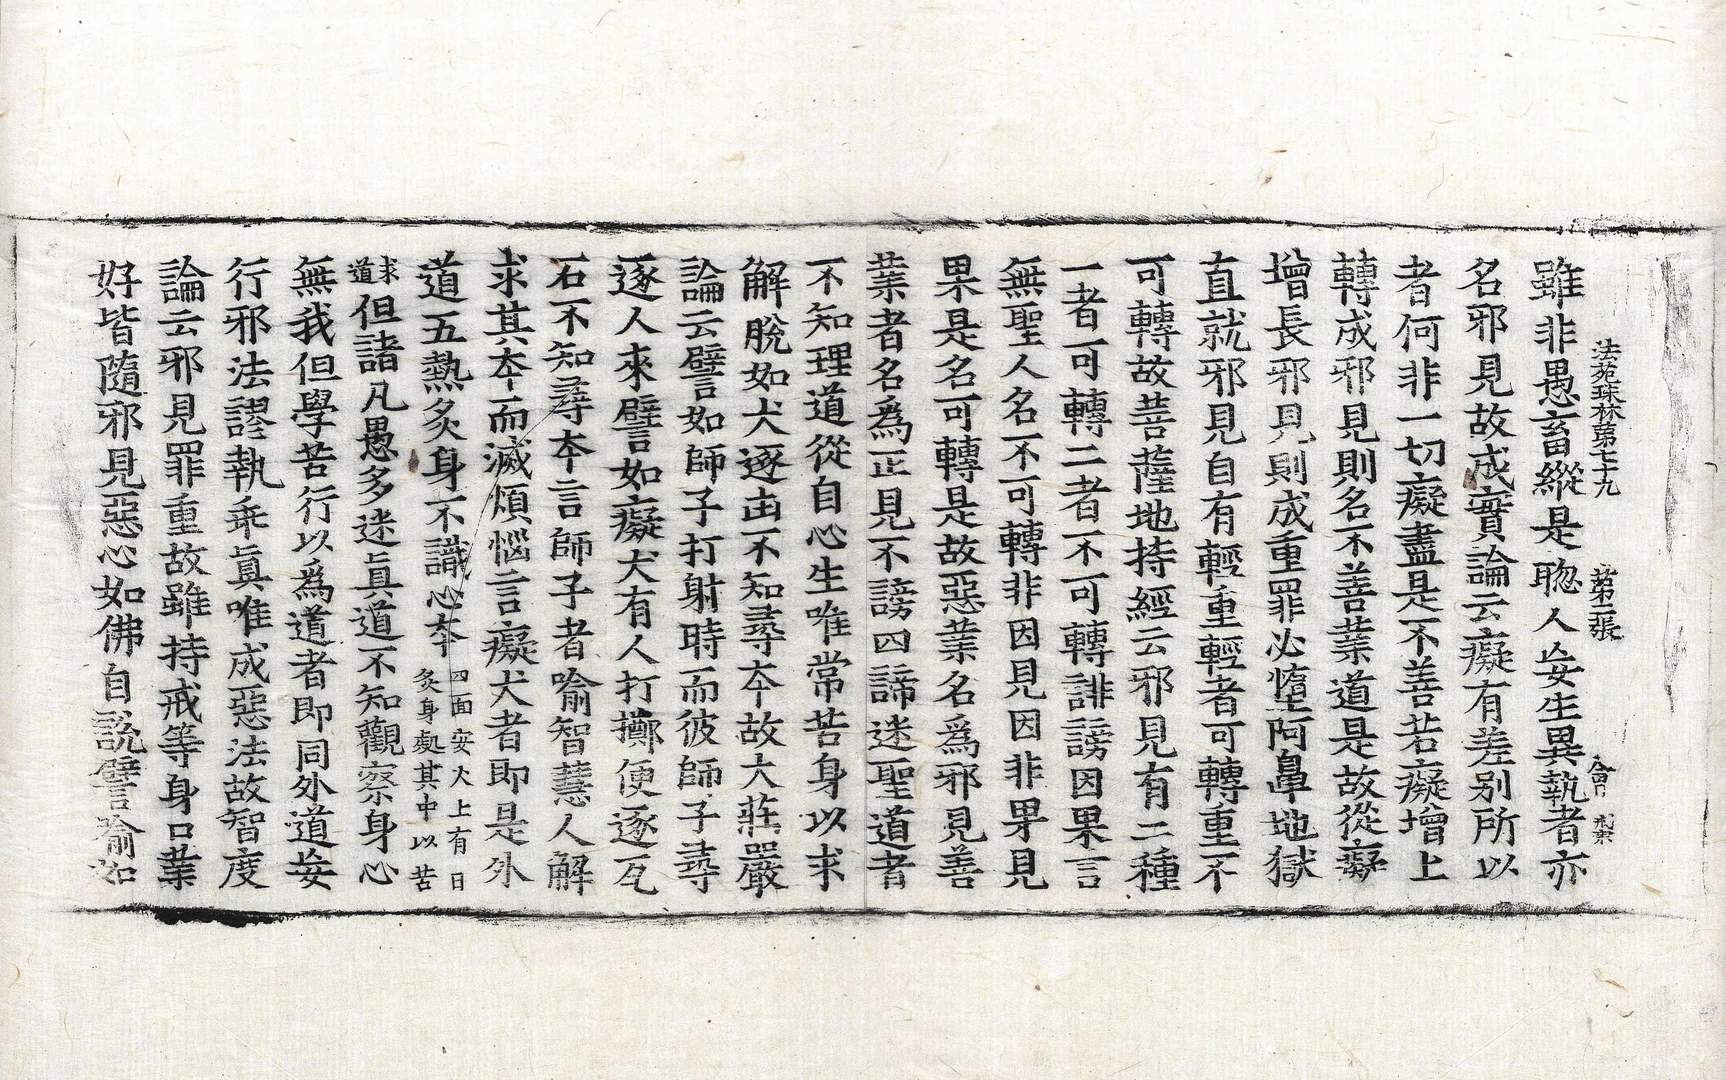 法苑珠林第七十九　第二張
雖非愚畜縱是聦人妄生異執者亦
名邪見故成實論云癡有差別所以
者何非一切癡盡是不善若癡增上
轉成邪見則名不善業道是故從癡
增長邪見則成重罪必墮阿鼻地獄
直就邪見自有輕重輕者可轉重不
可轉故菩薩地持經云邪見有二種
一者可轉二者不可轉誹謗因果言
無聖人名不可轉非因見因非果見
果是名可轉是故惡業名爲邪見善
業者名爲正見不謗四諦迷聖道者
不知理道從自心生唯常苦身以求
解脫如犬逐凷不知尋本故大莊嚴
論云譬如師子打射時而彼師子尋
逐人來譬如癡犬有人打擲便逐瓦
石不知尋本言師子者喻智慧人解
求其本而滅煩惱言癡犬者即是外
道五熱炙身不識心本四面安火上有日炙身處其中以苦
求道但諸凡愚多迷真道不知觀察身心
無我但學苦行以爲道者即同外道妄
行邪法謬執乖真唯成惡法故智度
論云邪見罪重故雖持戒等身口業
好皆隨邪見惡心如佛自說譬喻如